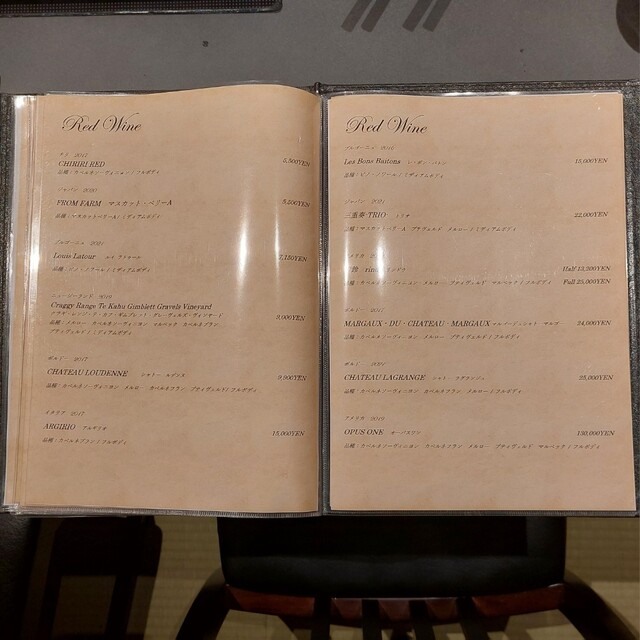 Red Wine
チリ 2021
CHIRIRI RED
5,500YEN
品種：カベルネソーヴィニョン / フルボディ
ジャパン 2020
FROM FARM マスカット・ベリーA
5,500YEN
品種：マスカットベリーA / ミディアムボディ
ブルゴーニュ 2021
Louis Latour ルイ ラトゥール
7,150YEN
品種：ピノ・ノワール / ミディアムボディ
ニュージーランド 2019
Craggy Range Te Kahu Gimblett Gravels Vineyard
9,000YEN
品種：メルロー カベルネソーヴィニヨン マルベック カベルネフラン
プティヴェルド / ミディアムボディ
ボルドー 2017
CHATEAU LOUDENNE シャトー ルデンヌ
9,900YEN
品種：カベルネソーヴィニヨン メルロー カベルネフラン プティヴェルド / フルボディ
イタリア 2017
ARGIRIO アルジリオ
15,000YEN
品種：カベルネフラン / フルボディ
Red Wine
ブルゴーニュ
Les Bons Batons レ・ボン・バトン
15,000YEN
品種：ピノ・ノワール / ミディアムボディ
ジャパン 2021
三重奏 TRIO トリオ
22,000YEN
品種：マスカットベリーA プティヴェルド メルロー / ミディアムボディ
Half 13,200YEN
Full 25,000YEN
ボルドー
MARGAUX・DU・CHATEAU・MARGAUX マルゴー デュ シャトー マルゴー
24,000YEN
品種：カベルネソーヴィニヨン メルロー プティヴェルド / フルボディ
ボルドー
CHATEAU LAGRANGE シャトー ラグランジュ
25,000YEN
品種：カベルネソーヴィニヨン カベルネフラン メルロー / フルボディ
アメリカ 2019
OPUS ONE オーパスワン
130,000YEN
品種：カベルネソーヴィニヨン カベルネフラン メルロー プティヴェルド マルベック / フルボディ